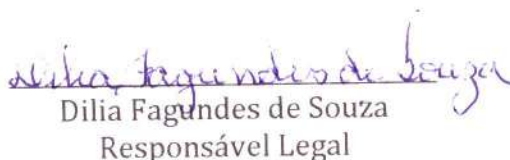 Dilia Fagundes de Souza
Dilia Fagundes de Souza
Responsável Legal